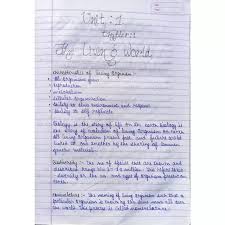 Unit : 1
Chapter : 1
The Living World
Characteristics of living Organism :-
All organism grow
Reproduction
Metabolism
Cellular Organisation
Ability to sense environment and respond
Ability to
Biology is the story of life on the earth. Biology is
the story of evolution of living organism on earth
All living organism present, past and future would
linked to one another by the sharing of common
genetic material.
Biodiversity :- The no. of species that are known and
described range b/w 1.7 - 1.8 million. This refers to
diversity or the no. and types of organism present on
earth.
Nomenclature :- The naming of living organism such that a
particular organism is known by the same name all over
the world. This process is called nomenclature.